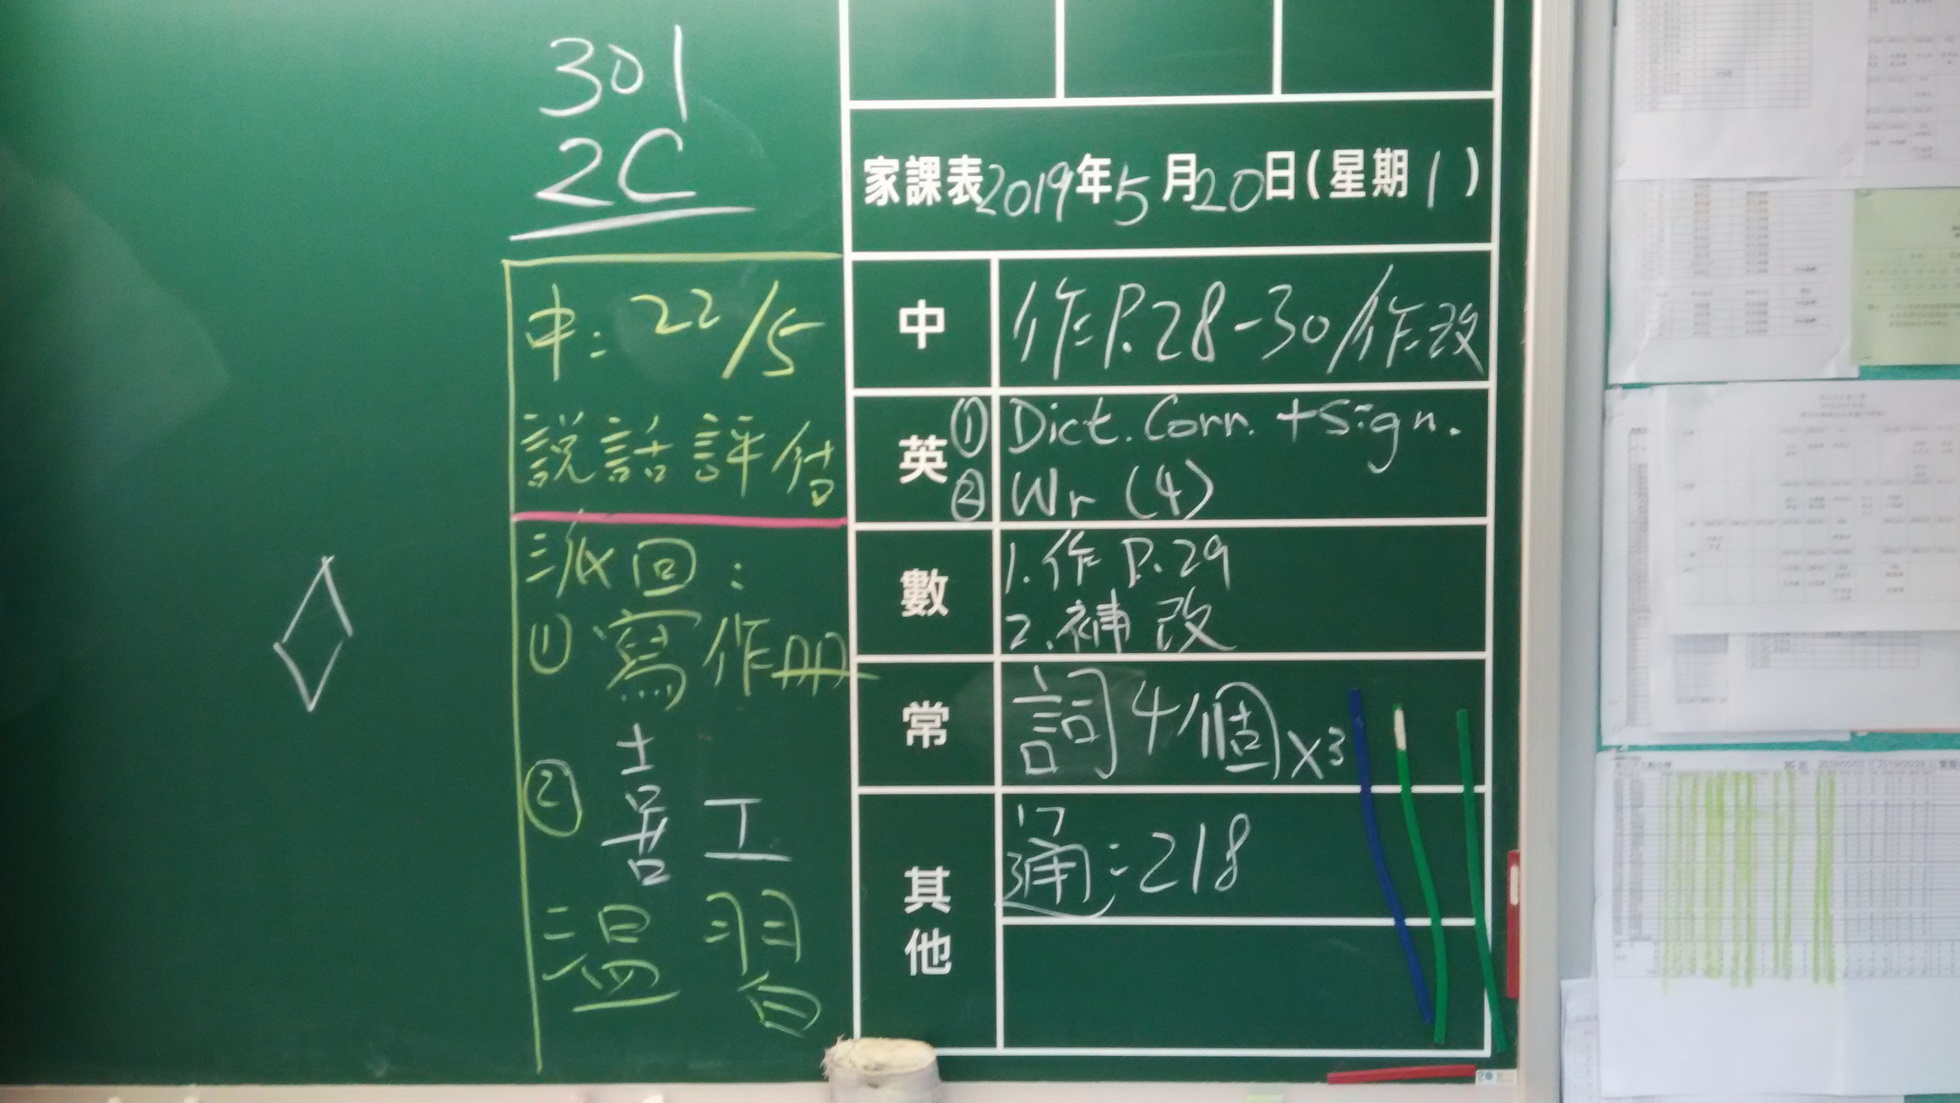 301
2C
中: 22/5
說話評估
派回:
① 寫作冊
② 喜工
溫習
家課表2019年5月20日(星期1)
中
作P.28-30/作改
英
① Dict. Corr. + Sign.
② Wr (4)
數
1. 作P.29
2. 補改
常
詞4個x3
其他
通: 218